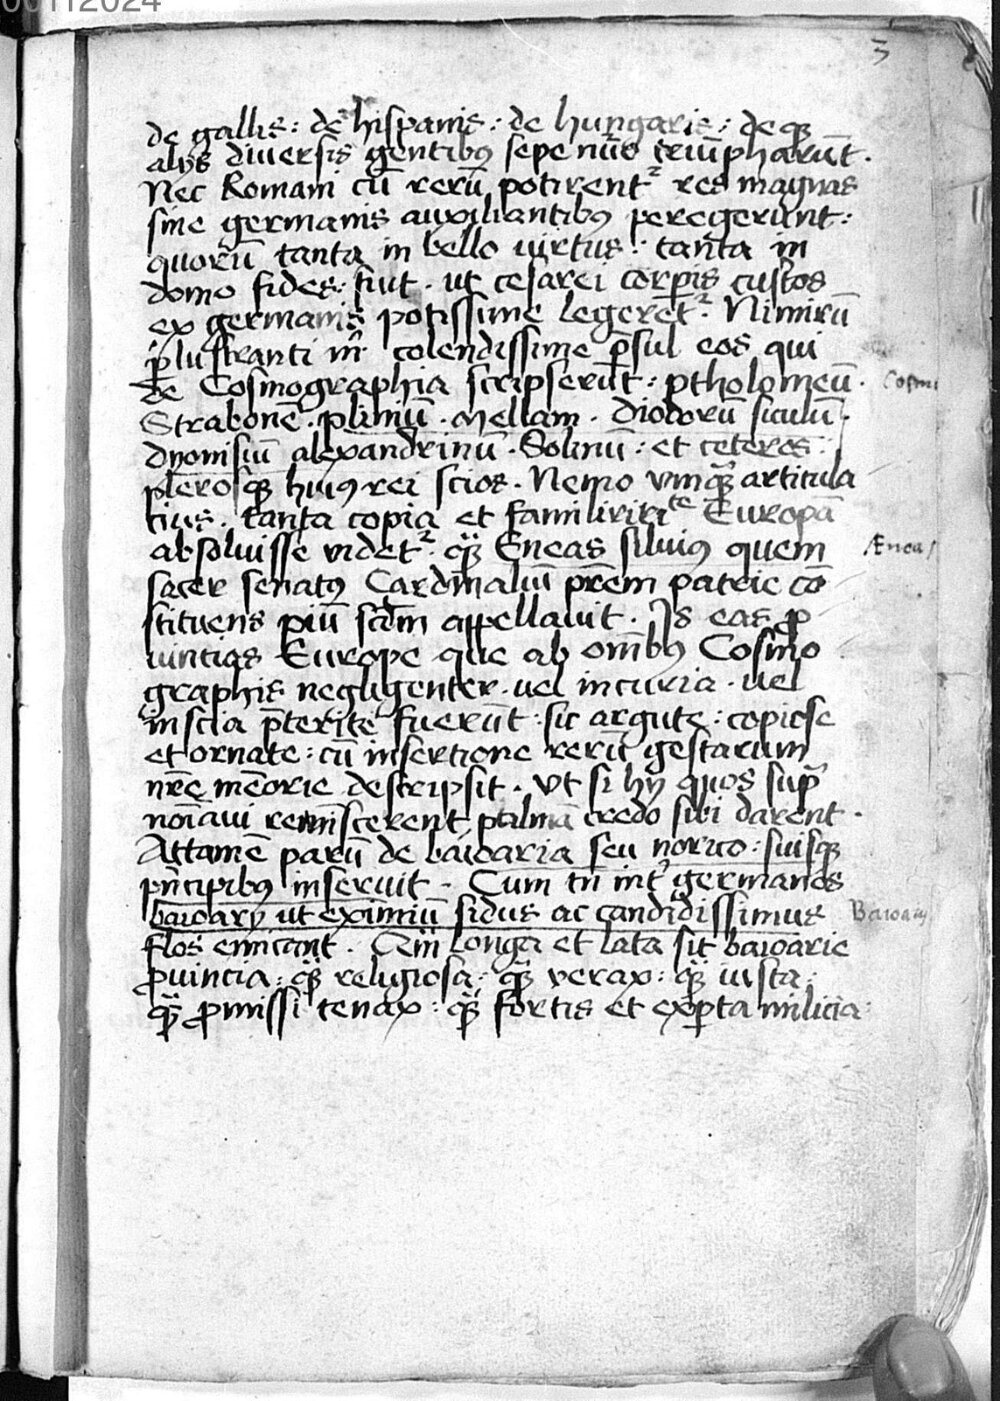 00112024
3
de gallis: de hispanis: de hungaris: deq3
alijs diuersis gentibus sepe nūo triūpharūt.
Nec Romani cū rerū potirent^r res magnas
sine germanis auxiliantibus peregerunt:
quorū tanta in bello uirtus: tanta in
domo fides: fiut. ut cesarei corꝑis custos
ex germanis potissime legerēt^r. Nimirū
ꝑlustranti m̄ colendissime p̄sul eos qui
de Cosmographia scripserūt: ptholomeū.
Cosmo
Strabonē. pliniū. Mellam. Diodorū siculū.
dyonisiū alexandrinū. Solinū: et ceteros:
plerosq3 huius rei scios. Nemo vmq̄3 articula
tius. tanta copia et familirit^te Europā
absoluisse videt^r. q̄3 Eneas siluius quem
Ænea
sacer senatus Cardinaliū prēm patrie cō
stituens piū scdm appellauit. Is eas ꝓ
uincias Europe que ab om̄ibus Cosmo
graphis negligenter. uel incuria. uel
inscia p̄terite fuerūt: sic argute: copiose
et ornate: cū insertione rerū gestarum
nr̄e mēorie descripsit. Vt si hij quos supra
noīaui reminiscerent, palmā credo sibi darent.
Attamē parū de baioaria seu norico: suisq3
prīcipibus inseruit. Cum tn̄ int^r germanos
baioarij ut eximiū sidus ac candidissimus
Baioarij
flos emicant. Qm̄ longa et lata sit baioarie
ꝓuincia: q̄3 religiosa: q̄3 verax: q̄3 iusta:
q̄3 ꝓmissi tenax: q̄3 fortis et exꝑta milicia: